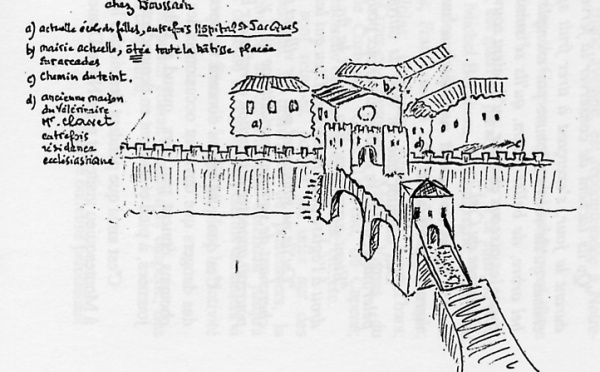 chez Doussain
a) actuelle école de filles, autrefois Hôpital St Jacques
b) mairie actuelle, ôtée toute la bâtisse placée
sur arcades
c) Chemin du teint.
d) ancienne maison
du Vétérinaire
Mr. Clavet
autrefois
résidence
ecclésiastique
a)
b
d)
c